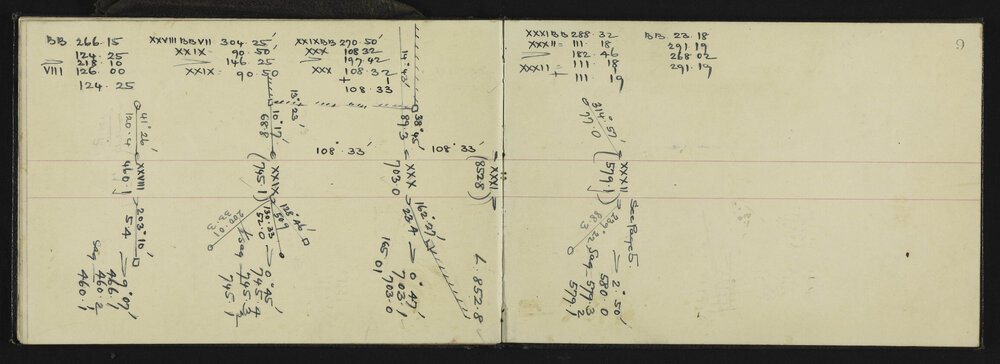 BB 266.15
124.25
218.10
VIII 126.00
124.25
XXVIII BB VII 304.25
XXIX 90.50
146.25
XXIX = 90.50
XXIX BB 270.50
XXX 108 32
197.42
XXX 108.32
108.33
XXXI BB 288.32
XXXII = 111.18
182.46
XXXII = 111.18
111 19
BB. 23.18
291.19
268.02
291.19
9
41°26'
120.4
XXVIII
460.1
203°10'
54
0°07'
466.1
Sag 460.2
460.1
15°23'
10°17'
68.8
XXIX
(745.1)
128°46'
50.9
130.33
52.0
200.01
33.3
0°45'
745.4
Sag 745.3
745.1
14°43'
38°45'
89.3
108°.33'
XXX
703.0
162°27'
23.4
0°47'
703.1
703.0
165 01
108°33'
XXXI
(852.8)
L. 852.8
314°51'
97.0
XXXII
(579.1)
239°22'
88.3
See Page 5
2°50'
580.0
Sag 579.3
579.1